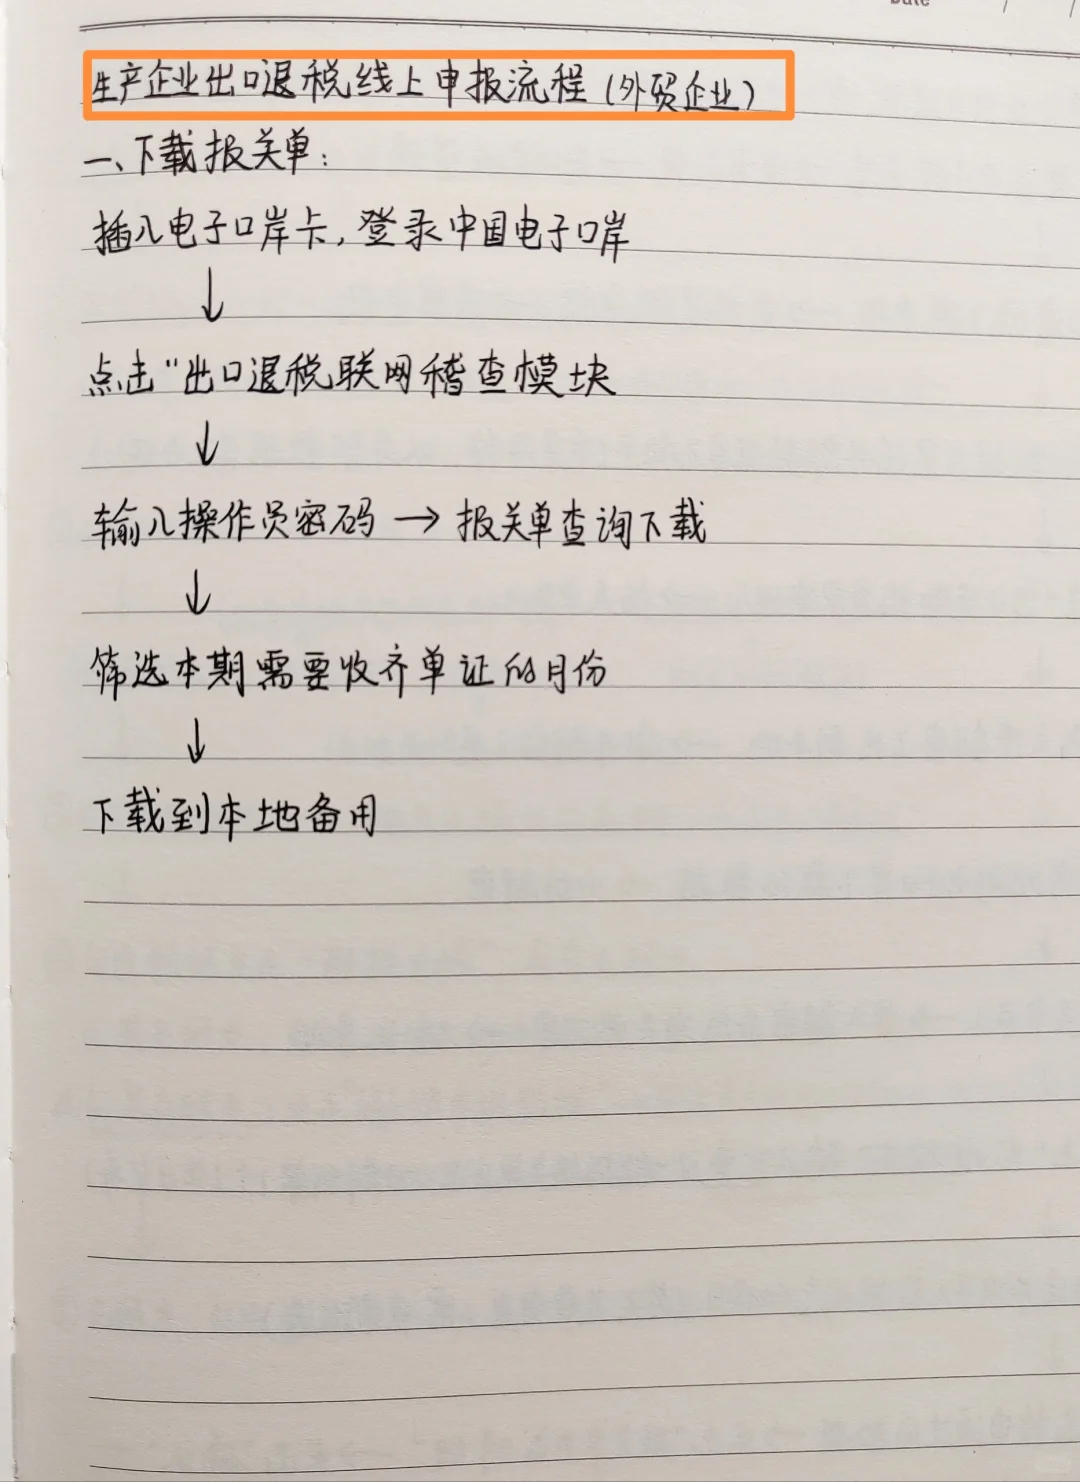 Date / /
生产企业出口退税线上申报流程(外贸企业)
一、下载报关单:
插入电子口岸卡,登录中国电子口岸
↓
点击"出口退税联网稽查模块
↓
输入操作员密码→报关单查询下载
↓
筛选本期需要收齐单证的月份
↓
下载到本地备用